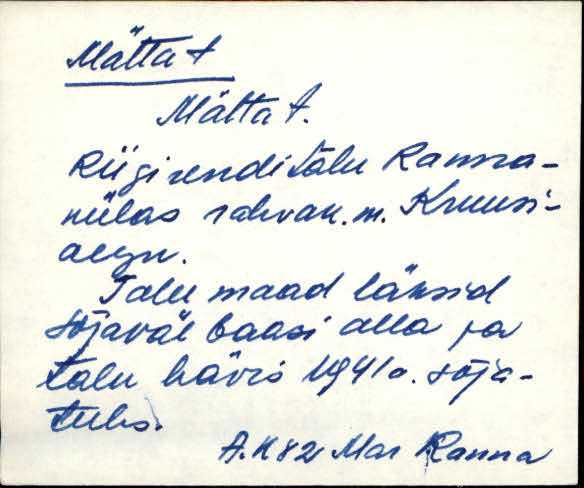 Mätta t
Mätta t.
Riigirenditalu Ranna-
külas rahvak. m. Kruusi-
augu.
Talu maad läksid
sõjaväe baasi alla ja
talu hävis 1941 a. sõja-
tules.
A.K 82 Mar Ranna